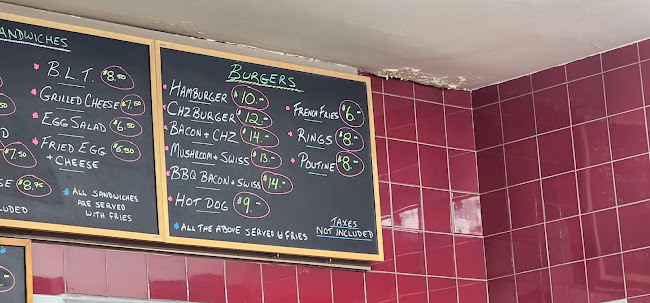 SANDWICHES
B.L.T. $8.50
GRILLED CHEESE $7.50
EGG SALAD $6.50
FRIED EGG $6.50
+ CHEESE
$7.50
$8.75
* ALL SANDWICHES
ARE SERVED
WITH FRIES
INCLUDED
BURGERS
HAMBURGER $10.-
CHZ BURGER $12.-
BACON + CHZ $14.-
MUSHROOM + SWISS $13.-
BBQ BACON + SWISS $14.-
HOT DOG $9.-
FRENCH FRIES $6.-
RINGS $8.-
POUTINE $8.-
* ALL THE ABOVE SERVED W FRIES
TAXES
NOT INCLUDED